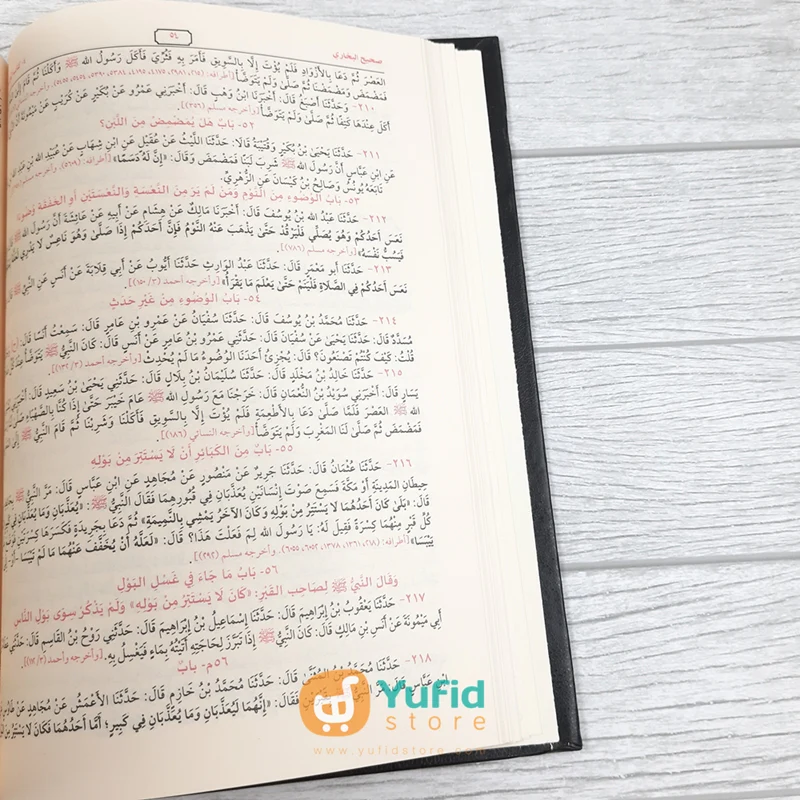 صحيح البخاري
٥٤
العَصْرَ ثُمَّ دَعَا بِالأَزْوَادِ فَلَمْ يُؤْتَ إِلَّا بِالسَّوِيقِ فَأَمَرَ بِهِ فَثُرِّيَ فَأَكَلَ رَسُولُ اللهِ ﷺ وَأَكَلْنَا ثُمَّ قَامَ
فَمَضْمَضَ وَمَضْمَضْنَا ثُمَّ صَلَّى وَلَمْ يَتَوَضَّأْ
٢١٠- وَحَدَّثَنَا أَصْبَغُ قَالَ: أَخْبَرَنَا ابْنُ وَهْبٍ قَالَ: أَخْبَرَنِي عَمْرُو عَنْ بُكَيْرٍ عَنْ كُرَيْبٍ عَنْ مَيْمُونَةَ أَنَّ
أَكَلَ عِنْدَهَا كَتِفًا ثُمَّ صَلَّى وَلَمْ يَتَوَضَّأْ [وأخرجه مسلم (٣٥٦)].
٥٢- بَابٌ هَلْ يُمَضْمِضُ مِنَ اللَّبَنِ؟
٢١١- حَدَّثَنَا يَحْيَى بْنُ بُكَيْرٍ وَقُتَيْبَةُ قَالَا: حَدَّثَنَا اللَّيْثُ عَنْ عُقَيْلٍ عَنِ ابْنِ شِهَابٍ عَنْ عُبَيْدِ اللهِ بْنِ
عَنِ ابْنِ عَبَّاسٍ أَنَّ رَسُولَ اللهِ ﷺ شَرِبَ لَبَنًا فَمَضْمَضَ وَقَالَ: «إِنَّ لَهُ دَسَمًا»
تَابَعَهُ يُونُسُ وَصَالِحُ بْنُ كَيْسَانَ عَنِ الزُّهْرِيِّ.
٥٣- بَابُ الوُضُوءِ مِنَ النَّوْمِ وَمَنْ لَمْ يَرَ مِنَ النَّعْسَةِ وَالنَّعْسَتَيْنِ أَوِ الخَفْقَةِ وُضُوءًا
٢١٢- حَدَّثَنَا عَبْدُ اللهِ بْنُ يُوسُفَ قَالَ: أَخْبَرَنَا مَالِكٌ عَنْ هِشَامٍ عَنْ أَبِيهِ عَنْ عَائِشَةَ أَنَّ رَسُولَ اللهِ
نَعَسَ أَحَدُكُمْ وَهُوَ يُصَلِّي فَلْيَرْقُدْ حَتَّى يَذْهَبَ عَنْهُ النَّوْمُ فَإِنَّ أَحَدَكُمْ إِذَا صَلَّى وَهُوَ نَاعِسٌ لَا يَدْرِي
فَيَسُبُّ نَفْسَهُ» [وأخرجه مسلم (٧٨٦)].
٢١٣- حَدَّثَنَا أَبُو مَعْمَرٍ قَالَ: حَدَّثَنَا عَبْدُ الوَارِثِ حَدَّثَنَا أَيُّوبُ عَنْ أَبِي قِلَابَةَ عَنْ أَنَسٍ عَنِ النَّبِيِّ
نَعَسَ أَحَدُكُمْ فِي الصَّلَاةِ فَلْيَنَمْ حَتَّى يَعْلَمَ مَا يَقْرَأُ» [وأخرجه أحمد (٣/ ١٥٠)].
٥٤- بَابُ الوُضُوءِ مِنْ غَيْرِ حَدَثٍ
٢١٤- حَدَّثَنَا مُحَمَّدُ بْنُ يُوسُفَ قَالَ: حَدَّثَنَا سُفْيَانُ عَنْ عَمْرِو بْنِ عَامِرٍ قَالَ: سَمِعْتُ أَنَسًا قَالَ:
مُسَدَّدٌ قَالَ: حَدَّثَنَا يَحْيَى عَنْ سُفْيَانَ قَالَ: حَدَّثَنِي عَمْرُو بْنُ عَامِرٍ عَنْ أَنَسٍ قَالَ: كَانَ النَّبِيُّ ﷺ يَتَوَضَّأُ
قُلْتُ: كَيْفَ كُنْتُمْ تَصْنَعُونَ؟ قَالَ: يُجْزِئُ أَحَدَنَا الوُضُوءُ مَا لَمْ يُحْدِثْ [وأخرجه أحمد (٣/ ١٣٢)].
٢١٥- حَدَّثَنَا خَالِدُ بْنُ مَخْلَدٍ قَالَ: حَدَّثَنَا سُلَيْمَانُ بْنُ بِلَالٍ قَالَ: حَدَّثَنِي يَحْيَى بْنُ سَعِيدٍ قَالَ: أَخْبَرَنِي
يَسَارٍ قَالَ: أَخْبَرَنِي سُوَيْدُ بْنُ النُّعْمَانِ قَالَ: خَرَجْنَا مَعَ رَسُولِ اللهِ ﷺ عَامَ خَيْبَرَ حَتَّى إِذَا كُنَّا بِالصَّهْبَاءِ
اللهِ ﷺ العَصْرَ فَلَمَّا صَلَّى دَعَا بِالأَطْعِمَةِ فَلَمْ يُؤْتَ إِلَّا بِالسَّوِيقِ فَأَكَلْنَا وَشَرِبْنَا ثُمَّ قَامَ النَّبِيُّ ﷺ
فَمَضْمَضَ ثُمَّ صَلَّى لَنَا المَغْرِبَ وَلَمْ يَتَوَضَّأْ [وأخرجه النسائي (١٨٦)].
٥٥- بَابٌ مِنَ الكَبَائِرِ أَنْ لَا يَسْتَتِرَ مِنْ بَوْلِهِ
٢١٦- حَدَّثَنَا عُثْمَانُ قَالَ: حَدَّثَنَا جَرِيرٌ عَنْ مَنْصُورٍ عَنْ مُجَاهِدٍ عَنِ ابْنِ عَبَّاسٍ قَالَ: مَرَّ النَّبِيُّ ﷺ
حِيطَانِ المَدِينَةِ أَوْ مَكَّةَ فَسَمِعَ صَوْتَ إِنْسَانَيْنِ يُعَذَّبَانِ فِي قُبُورِهِمَا فَقَالَ النَّبِيُّ ﷺ: «يُعَذَّبَانِ وَمَا يُعَذَّبَانِ
قَالَ: «بَلَى كَانَ أَحَدُهُمَا لَا يَسْتَتِرُ مِنْ بَوْلِهِ وَكَانَ الآخَرُ يَمْشِي بِالنَّمِيمَةِ» ثُمَّ دَعَا بِجَرِيدَةٍ فَكَسَرَهَا
كُلِّ قَبْرٍ مِنْهُمَا كِسْرَةً فَقِيلَ لَهُ: يَا رَسُولَ اللهِ لِمَ فَعَلْتَ هَذَا؟ قَالَ: «لَعَلَّهُ أَنْ يُخَفَّفَ عَنْهُمَا مَا لَمْ تَيْبَسَا
يَيْبَسَا» [أطرافه: (٢١٨، ١٣٦١، ١٣٧٨، ٦٠٥٢، ٦٠٥٥)، وأخرجه مسلم (٢٩٢)].
٥٦- بَابُ مَا جَاءَ فِي غَسْلِ البَوْلِ
وَقَالَ النَّبِيُّ ﷺ لِصَاحِبِ القَبْرِ: «كَانَ لَا يَسْتَتِرُ مِنْ بَوْلِهِ» وَلَمْ يَذْكُرْ سِوَى بَوْلِ النَّاسِ
٢١٧- حَدَّثَنَا يَعْقُوبُ بْنُ إِبْرَاهِيمَ قَالَ: حَدَّثَنَا إِسْمَاعِيلُ بْنُ إِبْرَاهِيمَ قَالَ: حَدَّثَنِي رَوْحُ بْنُ القَاسِمِ قَالَ: حَدَّثَنِي
أَبِي مَيْمُونَةَ عَنْ أَنَسِ بْنِ مَالِكٍ قَالَ: كَانَ النَّبِيُّ ﷺ إِذَا تَبَرَّزَ لِحَاجَتِهِ أَتَيْتُهُ بِمَاءٍ فَيَغْسِلُ بِهِ.
٥٦م- بَابٌ
٢١٨- حَدَّثَنَا مُحَمَّدُ بْنُ المُثَنَّى قَالَ: حَدَّثَنَا مُحَمَّدُ بْنُ خَازِمٍ قَالَ: حَدَّثَنَا الأَعْمَشُ عَنْ مُجَاهِدٍ عَنْ
ابْنِ عَبَّاسٍ قَالَ فَقَالَ: «إِنَّهُمَا لَيُعَذَّبَانِ وَمَا يُعَذَّبَانِ فِي كَبِيرٍ؛ أَمَّا أَحَدُهُمَا فَكَانَ لَا يَسْتَتِرُ
Yufid
store
www.yufidstore.com